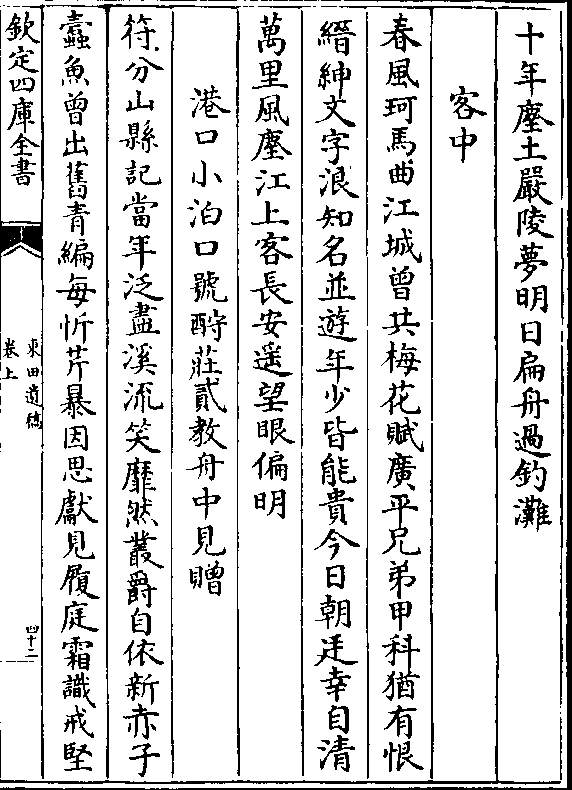 十年塵土嚴陵夢明日扁舟過釣灘
客中
春風珂馬曲江城曾共梅花賦廣平兄弟甲科猶有恨
縉紳文字浪知名並遊年少皆能貴今日朝廷幸自清
萬里風塵江上客長安遥望眼偏明
港口小泊口號酧莊貳教舟中見贈
符分山縣記當年泛盡溪流笑靡然叢爵自依新赤子
蠧魚曾出舊青編每忻芹暴因思獻見履庭霜識戒堅
欽定四庫全書
東田遺稿
卷上
四十二